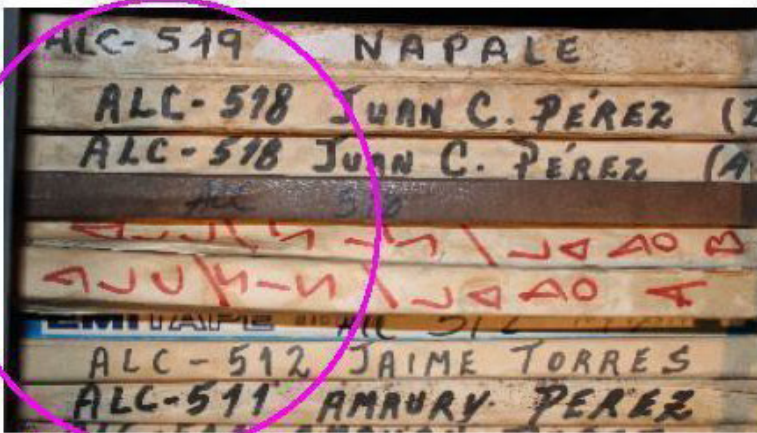 ALC-519 NAPALE
ALC-518 JUAN C. PÉREZ (2
ALC-518 JUAN C. PÉREZ (A
ALC
LADO B
LADO A
EMITAPE ALC 512
ALC-512 JAIME TORRES
ALC-511 AMAURY PEREZ